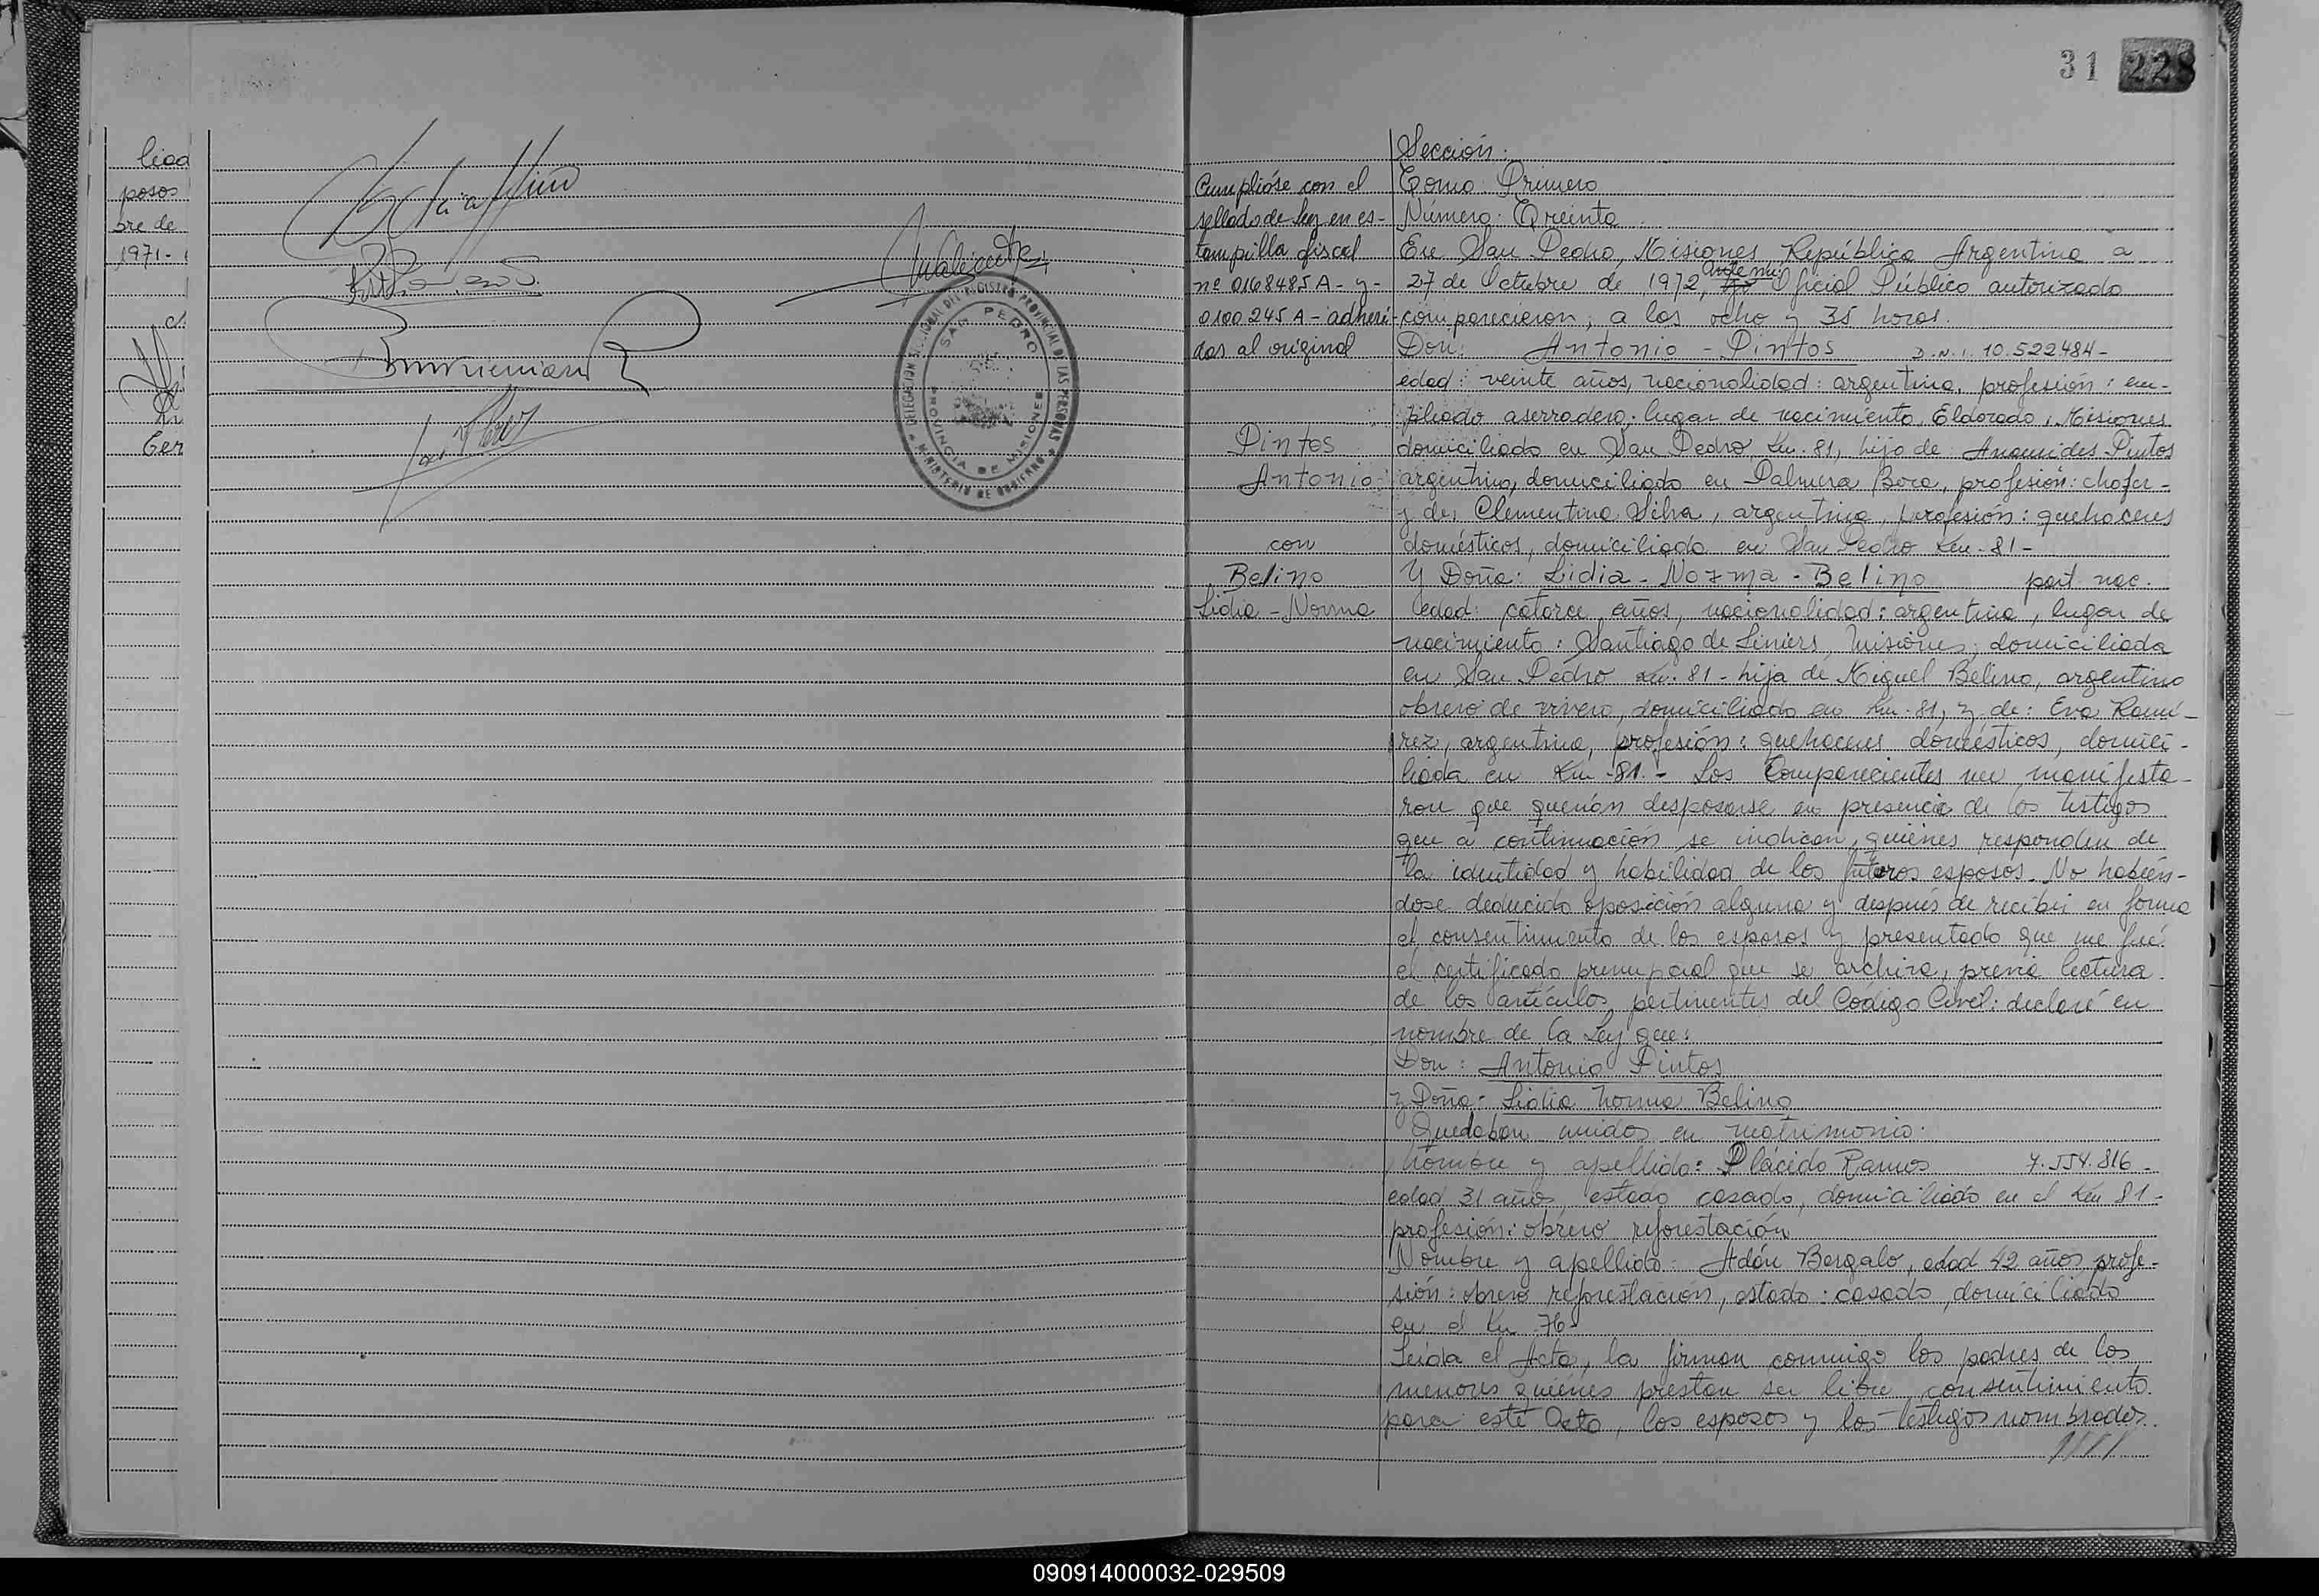 liad
posos
bre de
1971-
Ger
DELEGACION SECCIONAL DEL REGISTRO PROVINCIAL DE LAS PERSONAS
SAN PEDRO
PROVINCIA DE MISIONES
MINISTERIO DE GOBIERNO
31 228
Cumplióse con el
sellado de Ley en es-
tampilla fiscal
nº 0168485 A - y -
0100245 A - adheri-
das al original
Pintos
Antonio
con
Belino
Lidia - Norma
Sección:
Tomo Primero
Número: Treinta
En San Pedro, Misiones, República Argentina a
27 de Octubre de 1972, ante mi Oficial Público autorizado
comparecieron; a las ocho y 35 horas.
Don: Antonio - Pintos D.N.I. 10.522.484-
edad: veinte años, nacionalidad: argentina, profesión: em-
pleado aserradero; lugar de nacimiento, Eldorado, Misiones
domiciliado en San Pedro Km. 81, hijo de: Pintos
argentino, domiciliado en Palmera Boca, profesión: chofer-
y de, Clementina Silva, argentina, profesión: quehaceres
domésticos, domiciliada en San Pedro Km. 81-
Y Doña: Lidia - Norma - Belino part. nac.
edad: catorce años, nacionalidad: argentina, lugar de
nacimiento: Santiago de Liniers, Misiones, domiciliada
en San Pedro Km. 81 - hija de Miguel Belino, argentino
obrero de vivero, domiciliado en Km. 81, y de: Eva Ramí-
rez, argentina, profesión: quehaceres domésticos, domici-
liada en Km. 81.- Los Comparecientes me manifesta-
ron que querían desposarse en presencia de los testigos
que a continuación se indican, quiénes responden de
la identidad y habilidad de los futuros esposos. No habién-
dose deducido oposición alguna y después de recibir en forma
el consentimiento de los esposos y presentado que me fué
el certificado prenupcial que se archiva, previa lectura
de los artículos pertinentes del Código Civil: declaré en
nombre de la Ley que:
Don: Antonio Pintos
y Doña: Lidia Norma Belino
Quedaban unidos en matrimonio.
Nombre y apellido: Plácido Ramos 7.554.816-
edad 31 años, estado casado, domiciliado en el Km 81-
profesión: obrero reforestación
Nombre y apellido: Adán Bergalo, edad 42 años profe-
sión: obrero reforestación, estado: casado, domiciliado
en el Km 76
Leída el Acta, la firman conmigo los padres de los
menores quiénes prestan su libre consentimiento
para este Acto, los esposos y los testigos nombrados.
090914000032-029509